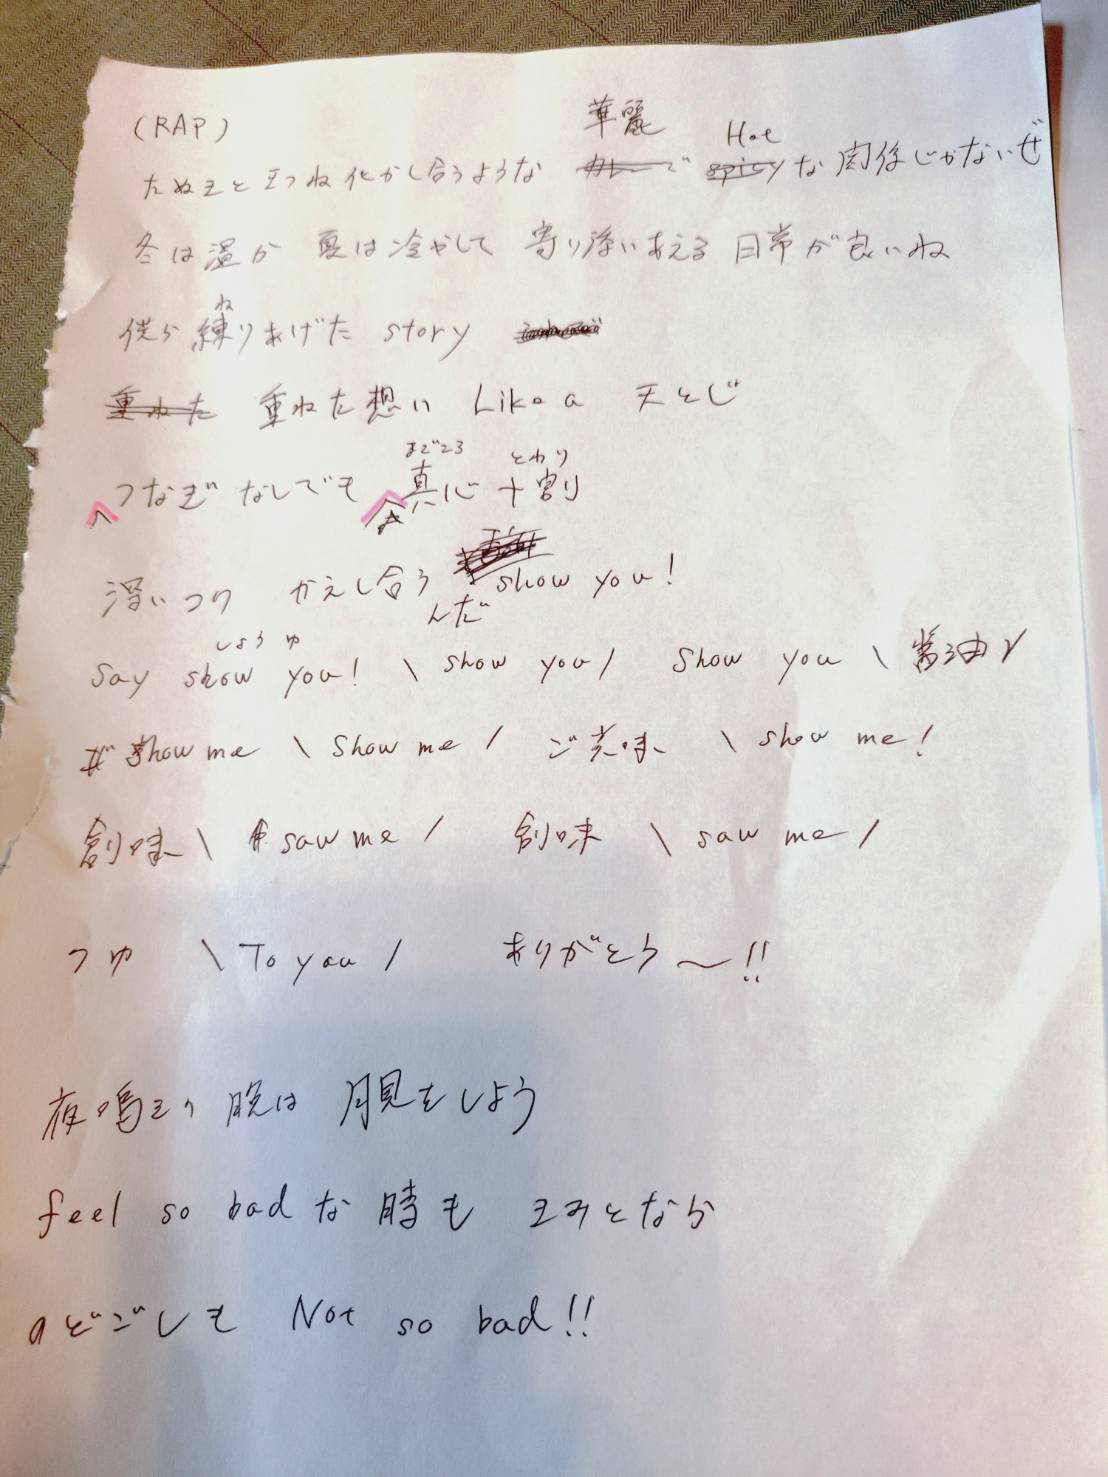 (RAP)
華麗 Hot
たぬきときつね化かし合うような カレーで spicy な関係じゃないぜ
冬は温か 夏は冷やして 寄り添いあえる 日常が良いね
ね
僕ら練りあげた story
重ねた 重ねた想い Like a 天とじ
まごころ とわり
つなぎ なしでも 真心 十割
深いつゆ かえし合う show you!
んだ
しょう ゆ
Say show you! \ show you / Show you \ 醤油 /
show me \ Show me / ご賞味 \ show me!
創味 \ saw me / 創味 \ saw me /
つゆ \ To you / ありがとう〜!!
夜鳴きの晩は 月見をしよう
feel so bad な時も きみとなら
のどごしも Not so bad!!